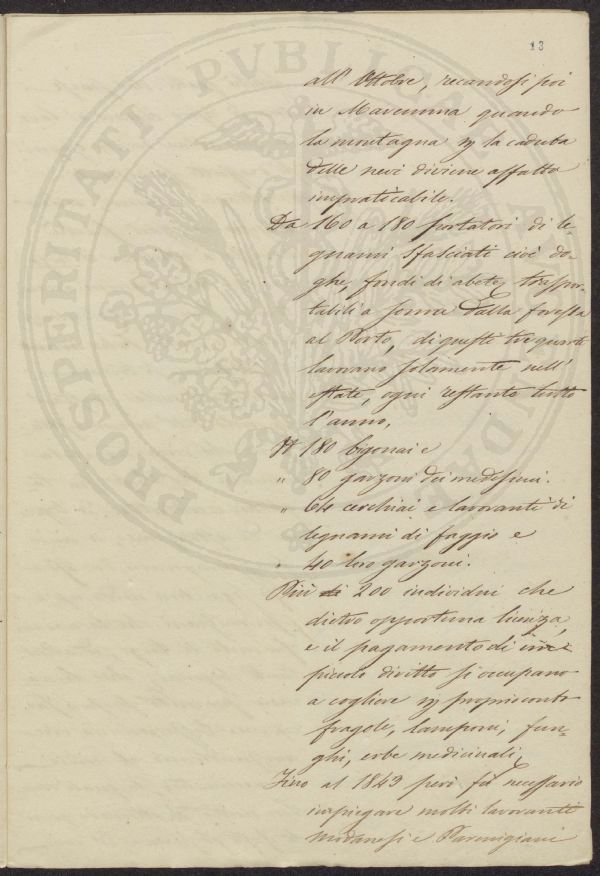 13
all' Ottobre, recandosi poi
in Maremma quando
la montagna p la caduta
delle nevi diviene affatto
impraticabile.
Da 160 a 180 portatori di le,
gnami sfasciati cioè do-
ghe, fondi di abete, traspor-
tabili a soma dalla foresta
al Porto, di questi tre quarti
lavorano solamente nell'
estate, ogni restante tutto
l'anno.
180 bigonai e
" 80 garzoni dei medesimi.
" 64 cerchiai e lavoranti di
legnami di faggio e
" 40 loro garzoni.
Più di 200 individui che
dietro opportuna licenza,
e il pagamento di un
piccolo diritto si occupano
a cogliere p proprio conto
fragole, lamponi, fun-
ghi, erbe medicinali,
Fino al 1849 però fù necessario
impiegare molti lavoranti
modanesi e Parmigiani
PROSPERITATI PVBLICAE